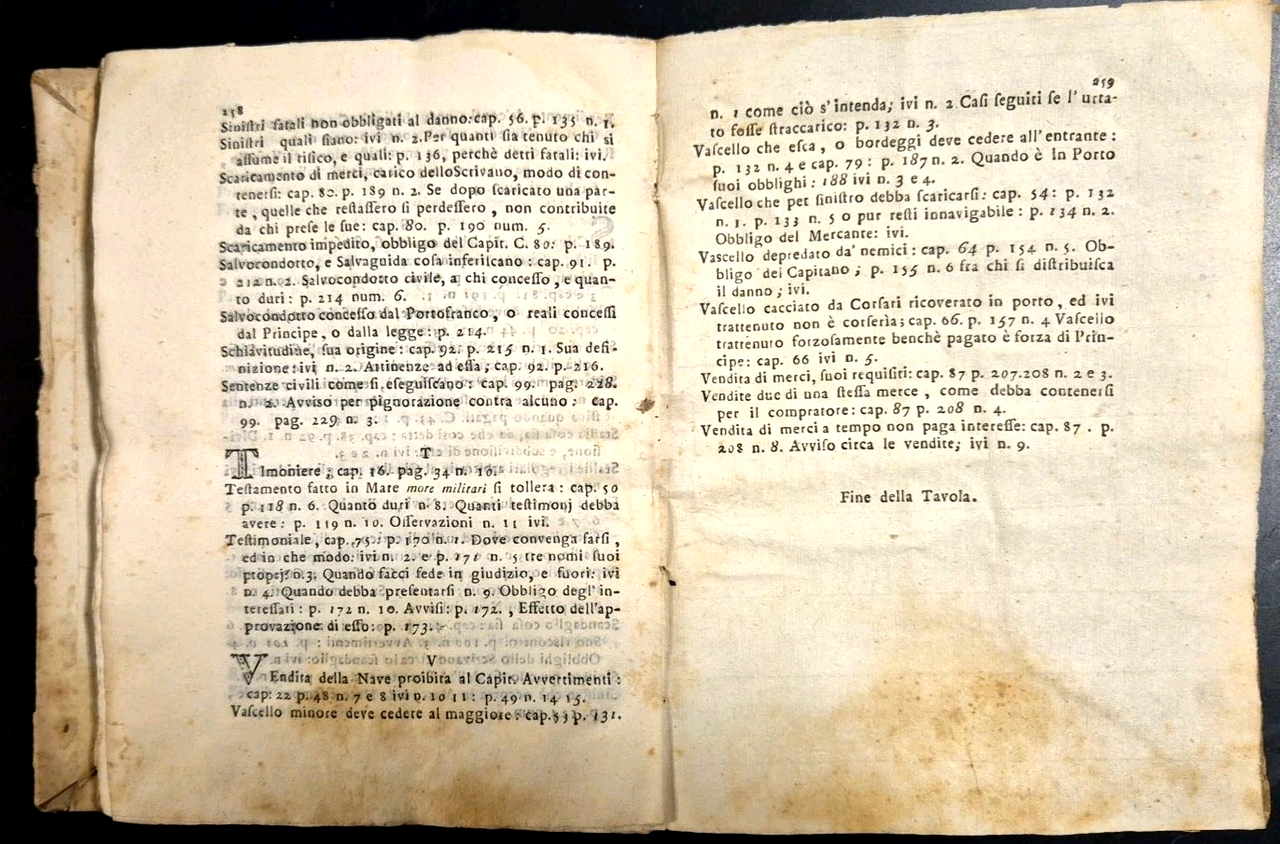 258
Siniſtri fatali non obbligati al danno: cap. 56. p. 135 n. 1.
Siniſtri quali ſiano: ivi n. 2. Per quanti ſia tenuto chi si
aſſume il riſico, e quali: p. 136, perchè detti fatali: ivi.
Scaricamento di merci, carico dello Scrivano, modo di con-
tenerſi: cap. 80. p. 189 n. 2. Se dopo ſcaricato una par-
te, quelle che reſtaſſero ſi perdeſſero, non contribuite
da chi prese le sue: cap. 80. p. 190 num. 5.
Scaricamento impedito, obbligo del Capit. C. 80: p. 189.
Salvocondotto, e Salvaguida coſa inferiſcano: cap. 91. p.
212 n. 2. Salvocondotto civile, a chi conceſſo, e quan-
to duri: p. 214 num. 6.
Salvocondotto conceſſo dal Portofranco, o reali conceſſi
dal Principe, o dalla legge: p. 214.
Schiavitudine, ſua origine: cap. 92. p. 215 n. 1. Sua defi-
nizione: ivi n. 2. Attinenze ad eſſa; cap. 92. p. 216.
Sentenze civili come ſi eſeguiſcano: cap. 99. pag. 228.
n. 2. Avviſo per pignorazione contra alcuno: cap.
99. pag. 229 n. 3.
T
Timoniere; cap. 16. pag. 34 n. 16.
Teſtamento fatto in Mare more militari ſi tollera: cap. 50
p. 118 n. 6. Quanto duri n. 8. Quanti teſtimonj debba
avere: p. 119 n. 10. Oſſervazioni n. 11 ivi.
Teſtimoniale, cap. 75: p. 170 n. 1. Dove convenga farſi,
ed in che modo: ivi n. 2. e p. 171 n. 5 tre nomi ſuoi
propej: n. 3. Quando facci fede in giudizio, e fuori: ivi
n. 4. Quando debba preſentarſi n. 9. Obbligo degl' in-
tereſſati: p. 172 n. 10. Avviſi: p. 172., Effetto dell'ap-
provazione di eſſo: p. 173.
V
VEndita della Nave proibita al Capit. Avvertimenti:
cap: 22 p. 48 n. 7 e 8 ivi n. 10 11: p. 49 n. 14 15.
Vaſcello minore deve cedere al maggiore: cap. 53 p. 131.
259
n. 1 come ciò s'intenda; ivi n. 2 Caſi ſeguiti ſe l'urta-
to foſſe ſtraccarico: p. 132 n. 3.
Vaſcello che eſca, o bordeggi deve cedere all'entrante:
p. 132 n. 4 e cap. 79: p. 187 n. 2. Quando è in Porto
ſuoi obblighi: 188 ivi n. 3 e 4.
Vaſcello che per ſiniſtro debba ſcaricarſi: cap. 54: p. 132
n. 1. p. 133 n. 5 o pur reſti innavigabile: p. 134 n. 2.
Obbligo del Mercante: ivi.
Vaſcello depredato da' nemici: cap. 64 p. 154 n. 5. Ob-
bligo del Capitano; p. 155 n. 6 fra chi ſi diſtribuiſca
il danno; ivi.
Vaſcello cacciato da Corſari ricoverato in porto, ed ivi
trattenuto non è corſerìa; cap. 66. p. 157 n. 4 Vaſcello
trattenuto forzoſamente benchè pagato è forza di Prin-
cipe: cap. 66 ivi n. 5.
Vendita di merci, ſuoi requiſiti: cap. 87 p. 207. 208 n. 2 e 3.
Vendite due di una ſteſſa merce, come debba contenerſi
per il compratore: cap. 87 p. 208 n. 4.
Vendita di merci a tempo non paga intereſſe: cap. 87. p.
208 n. 8. Avviſo circa le vendite; ivi n. 9.
Fine della Tavola.